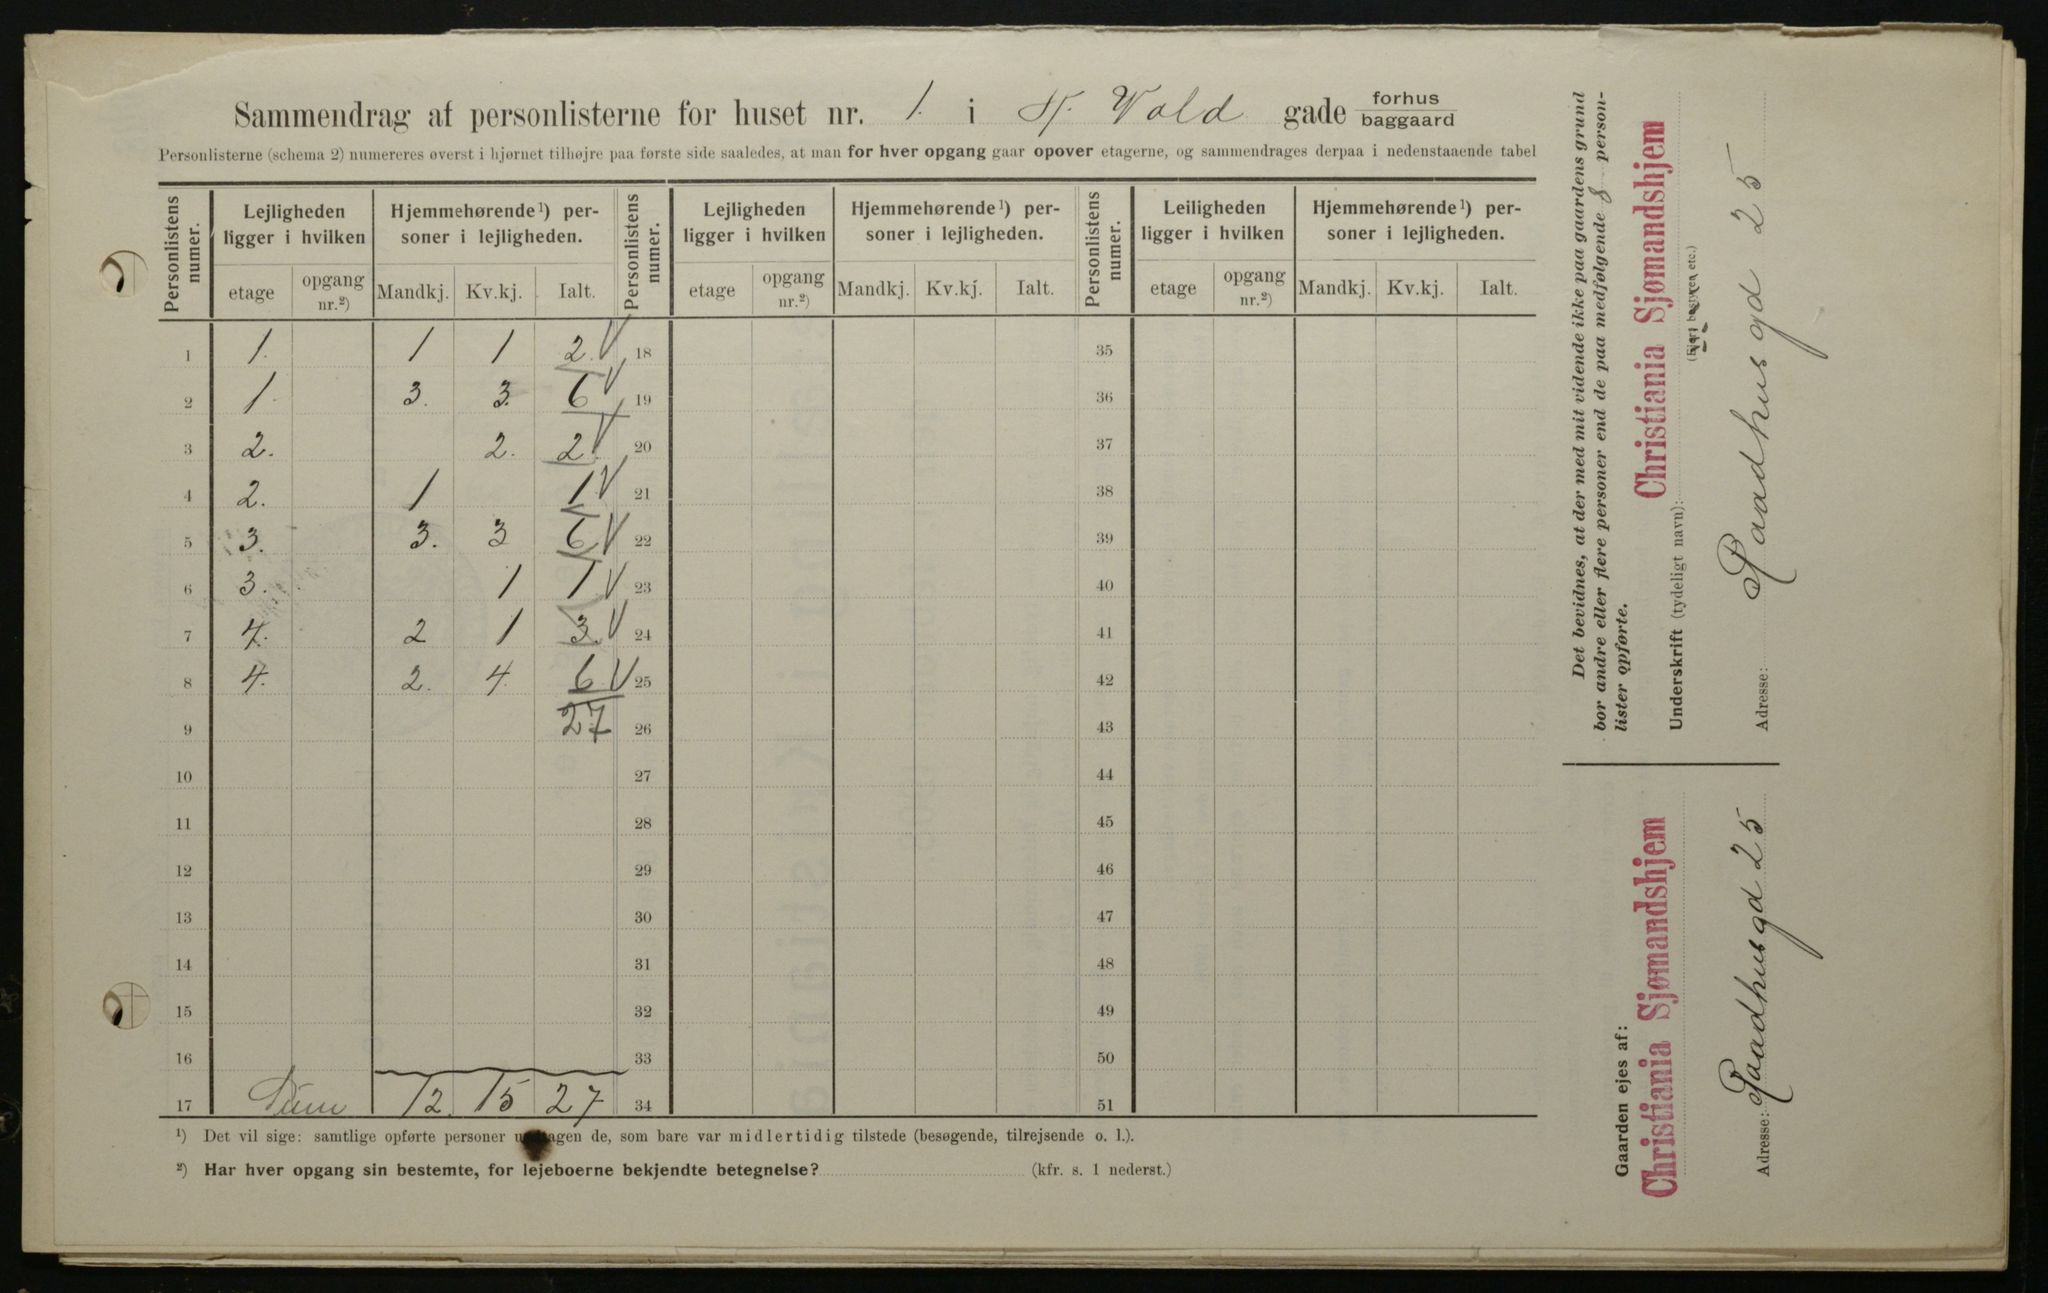 Sammendrag af personlisterne for huset nr. 1. i N. Vold gade forhus baggaard
Personlisterne (schema 2) numereres øverst i hjørnet tilhøjre paa første side saaledes, at man for hver opgang gaar opover etagerne, og sammendrages derpaa i nedenstaaende tabel
Personlistens numer. Lejligheden ligger i hvilken Hjemmehørende¹) personer i lejligheden. Personlistens numer. Lejligheden ligger i hvilken Hjemmehørende¹) personer i lejligheden. Personlistens numer. Leiligheden ligger i hvilken Hjemmehørende¹) personer i lejligheden.
etage opgang nr.²) Mandkj. Kv.kj. Ialt. etage opgang nr.²) Mandkj. Kv.kj. Ialt. etage opgang nr.²) Mandkj. Kv.kj. Ialt.
1 1. 1 1 2. V 18 35
2 1. 3. 3. 6 V 19 36
3 2. 2. 2. V 20 37
4 2. 1 1 V 21 38
5 3. 3. 3 6 V 22 39
6 3. 1 1 V 23 40
7 4. 2 1 3. V 24 41
8 4. 2. 4. 6 V 25 42
9 27 26 43
10 27 44
11 28 45
12 29 46
13 30 47
14 31 48
15 32 49
16 33 50
17 Sum 12. 15 27 34 51
¹) Det vil sige: samtlige opførte personer undtagen de, som bare var midlertidig tilstede (besøgende, tilrejsende o. l.).
²) Har hver opgang sin bestemte, for lejeboerne bekjendte betegnelse? (kfr. s. 1 nederst.)
Det bevidnes, at der med mit vidende ikke paa gaardens grund
bor andre eller flere personer end de paa medfølgende 8 person-
lister opførte.
Christiania Sjømandshjem
Underskrift (tydeligt navn):
(Ejer, bestyrer etc.)
Adresse: Raadhusgd 25
Gaarden ejes af:
Christiania Sjømandshjem
Adresse: Raadhusgd 25